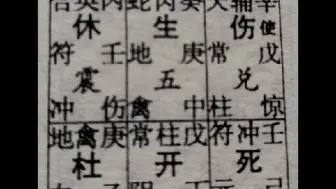 英丙 蛇 癸 天辅辛
休 生 伤使
符壬 地庚 常戊
震 五 兑
冲伤 禽中 柱惊
地禽庚 常柱戊 符冲壬
杜 开 死